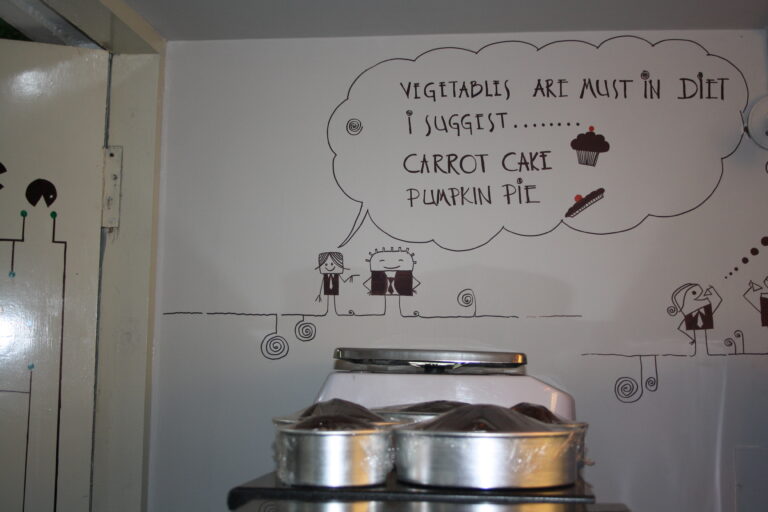 VEGETABLES ARE MUST IN DIET
i SUGGEST........
CARROT CAKE
PUMPKIN PiE